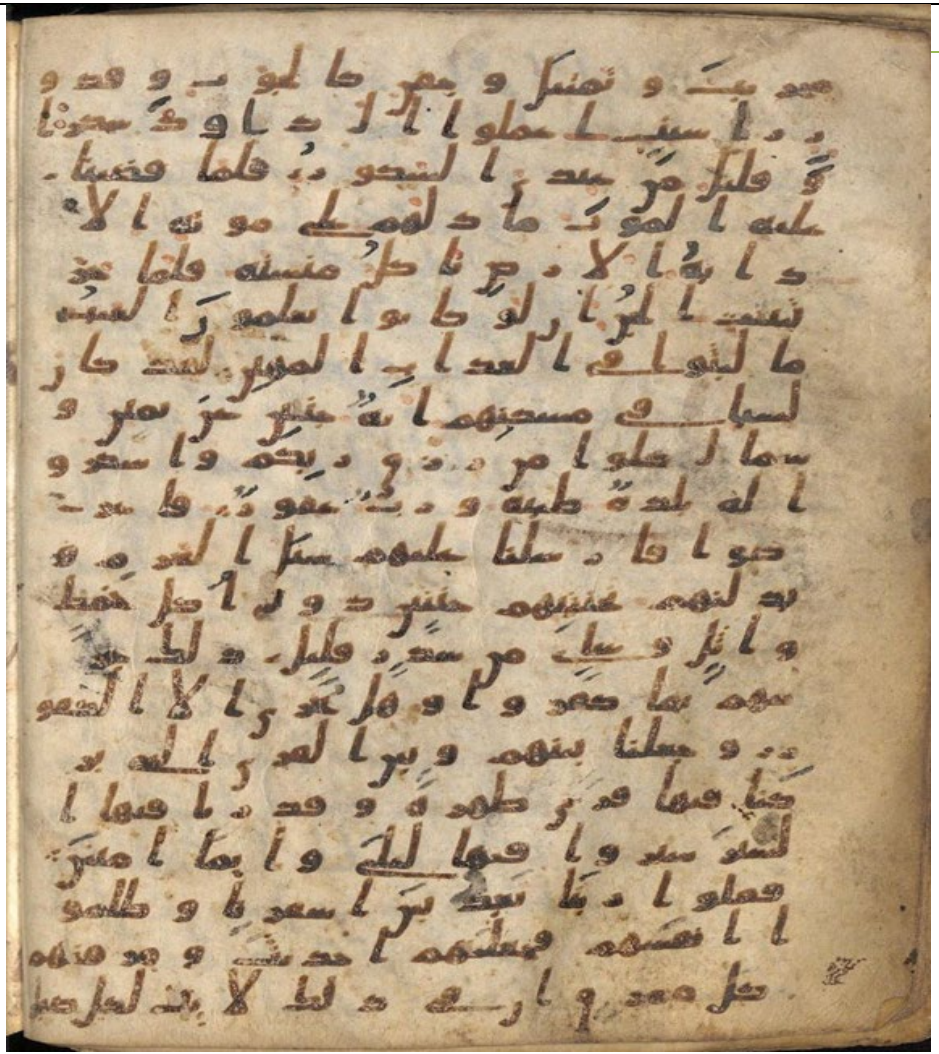 محريب و تمثيل و جفن كالجوب و قدو
ر راسيت اعملوا ال داود شكرا
و قليل من عبدي الشكور فلما قضينا
عليه الموت ما دلهم على موته الا
دابة الارض تاكل منسته فلما خر
تبينت الجن ان لو كانوا يعلمون الغيب
ما لبثوا في العذاب المهين لقد كان
لسبا في مسكنهم اية جنتين عن يمين و
شمال كلوا من رزق ربكم واشكرو
ا له بلدة طيبة و رب غفور فاعر
ضوا فارسلنا عليهم سيل العرم و
بدلنهم بجنتيهم جنتين ذوتي اكل خمط
و اثل و شي من سدر قليل ذلك جز
ينهم بما كفروا و هل نجزي الا الكفو
ر و جعلنا بينهم و بين القرى التي بر
كنا فيها قرى ظهرة و قدرنا فيها ا
لسير سيروا فيها ليلي و اياما امنين
فقلوا ربنا بعد بين اسفرنا و ظلمو
ا انفسهم فجعلنهم احديث و مزقنهم
كل ممزق ان في ذلك لايت لكل صبا